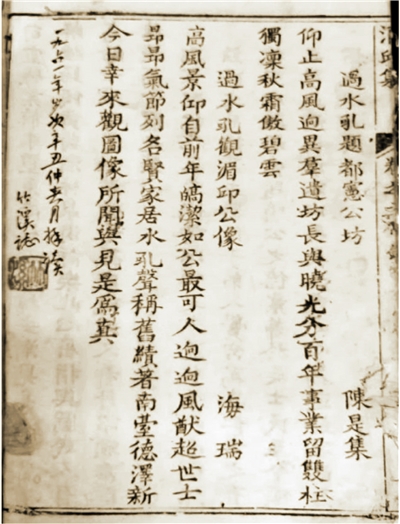 湄邱集
過水孔題都憲公坊　陳是集
仰止高風迥異羣遺坊長與曉光分百年事業留雙柱
獨凜秋霜傲碧雲
過水孔觀湄邱公像　海瑞
高風景仰自前年皜潔如公最可人迥迥風猷超世士
昻昻氣節列名賢家居水孔聲稱舊績著南臺德澤新
今日幸來觀圖像所聞與見是爲真
一九六一年歲次辛丑仲六月拜讀
竹溪誌